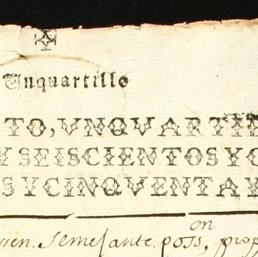 Unquartillo
TO, VNQVARTIL
Y SEISCIENTOS Y C
S Y CINQVENTA Y
on
semejante poss, prop